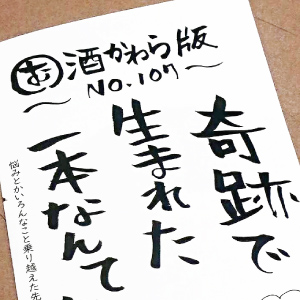 お酒かわら版
～No.107～
奇跡で
生まれた
一本なんて
悩みとかいろんなこと乗り越えた先